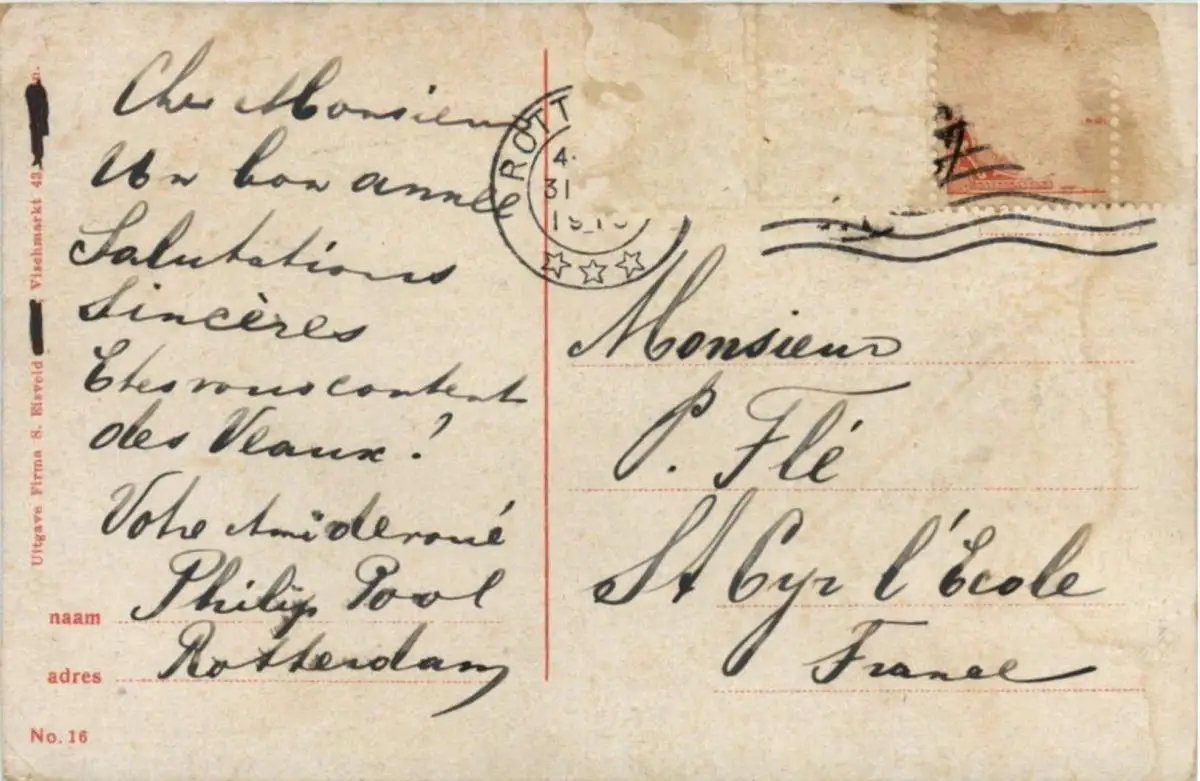 Cher Monsieur
Un bon année
Salutations
Sincères
Etes vous content
des Veaux?
Votre Ami dévoué
Philip Pool
Rotterdam
naam
adres
No. 16
Uitgave Firma S. Eisveld Vischmarkt 43,
ROTT
4.
31
Monsieur
P. Flé
St Cyr l'École
France